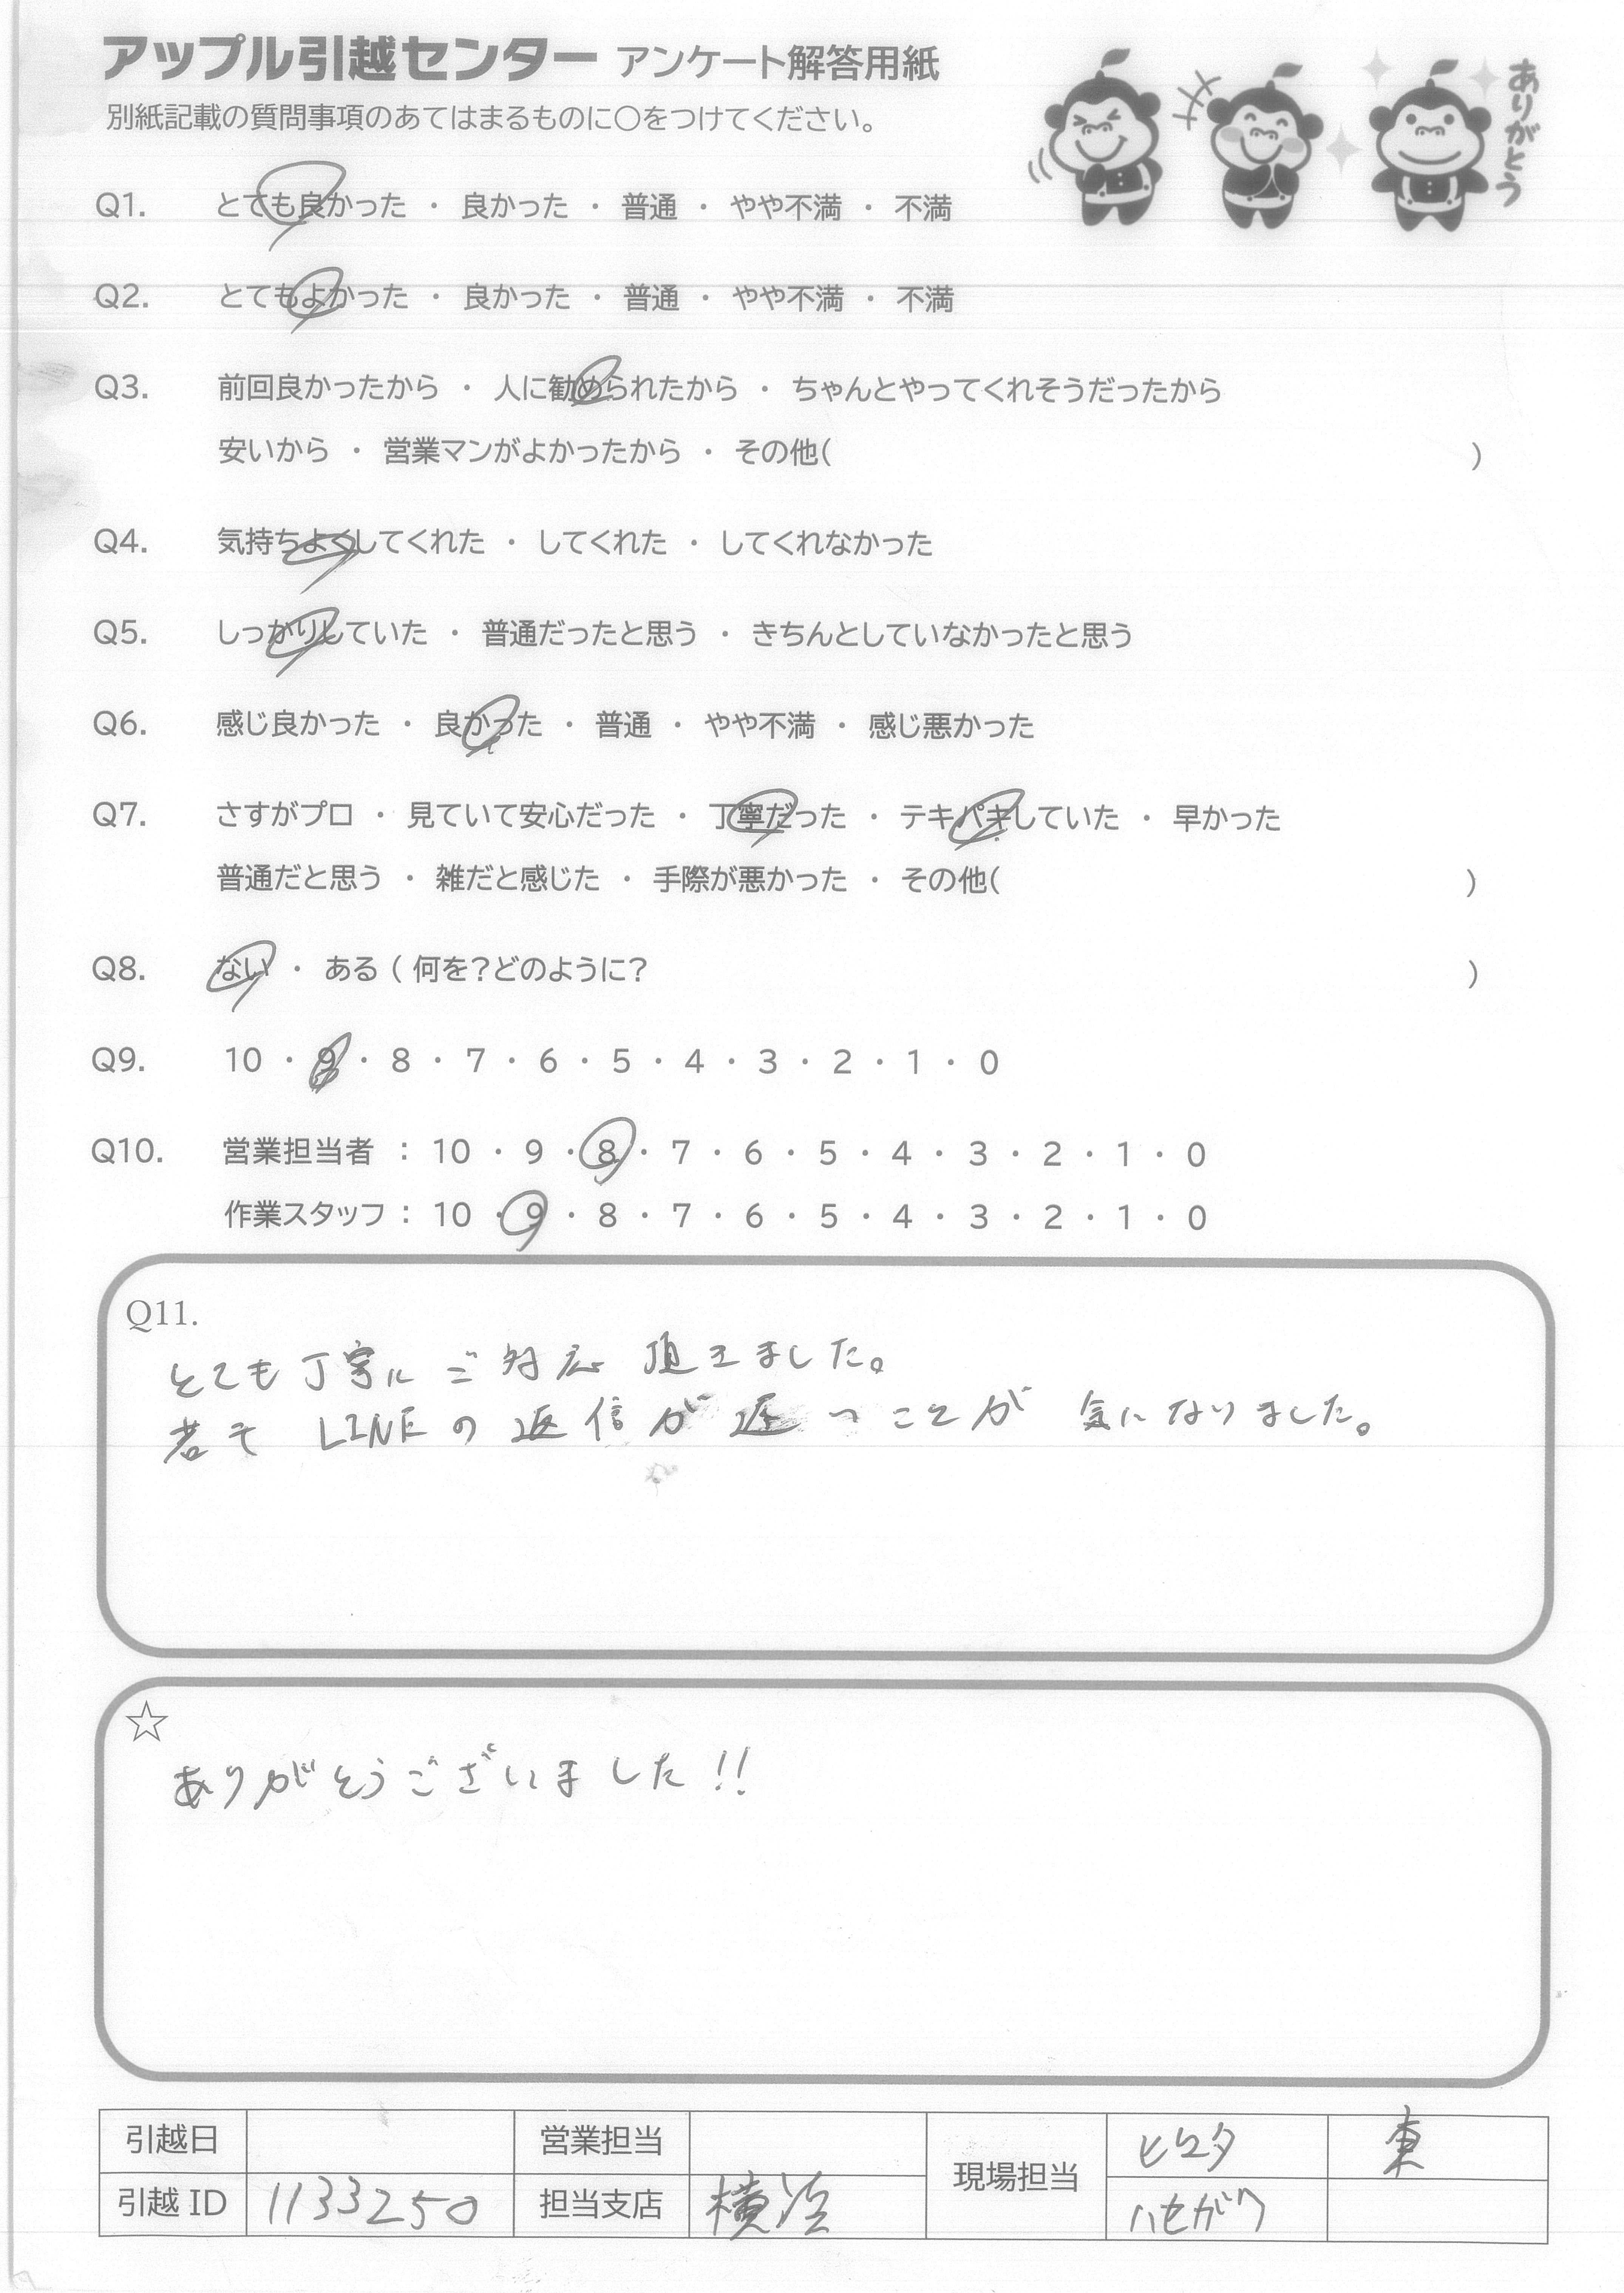 アップル引越センター アンケート解答用紙
別紙記載の質問事項のあてはまるものに○をつけてください。
ありがとう
Q1. とても良かった ・ 良かった ・ 普通 ・ やや不満 ・ 不満
Q2. とてもよかった ・ 良かった ・ 普通 ・ やや不満 ・ 不満
Q3. 前回良かったから ・ 人に勧められたから ・ ちゃんとやってくれそうだったから
安いから ・ 営業マンがよかったから ・ その他( )
Q4. 気持ちよくしてくれた ・ してくれた ・ してくれなかった
Q5. しっかりしていた ・ 普通だったと思う ・ きちんとしていなかったと思う
Q6. 感じ良かった ・ 良かった ・ 普通 ・ やや不満 ・ 感じ悪かった
Q7. さすがプロ ・ 見ていて安心だった ・ 丁寧だった ・ テキパキしていた ・ 早かった
普通だと思う ・ 雑だと感じた ・ 手際が悪かった ・ その他( )
Q8. ない ・ ある ( 何を?どのように? )
Q9. 10 ・ 9 ・ 8 ・ 7 ・ 6 ・ 5 ・ 4 ・ 3 ・ 2 ・ 1 ・ 0
Q10. 営業担当者 : 10 ・ 9 ・ 8 ・ 7 ・ 6 ・ 5 ・ 4 ・ 3 ・ 2 ・ 1 ・ 0
作業スタッフ : 10 ・ 9 ・ 8 ・ 7 ・ 6 ・ 5 ・ 4 ・ 3 ・ 2 ・ 1 ・ 0
Q11.
とても丁寧に ご対応 頂きました。
若干 LINEの返信が遅いことが 気になりました。
☆
ありがとうございました!!
引越日 営業担当 現場担当 東
引越 ID 1133250 担当支店 横浜 ハセガワ